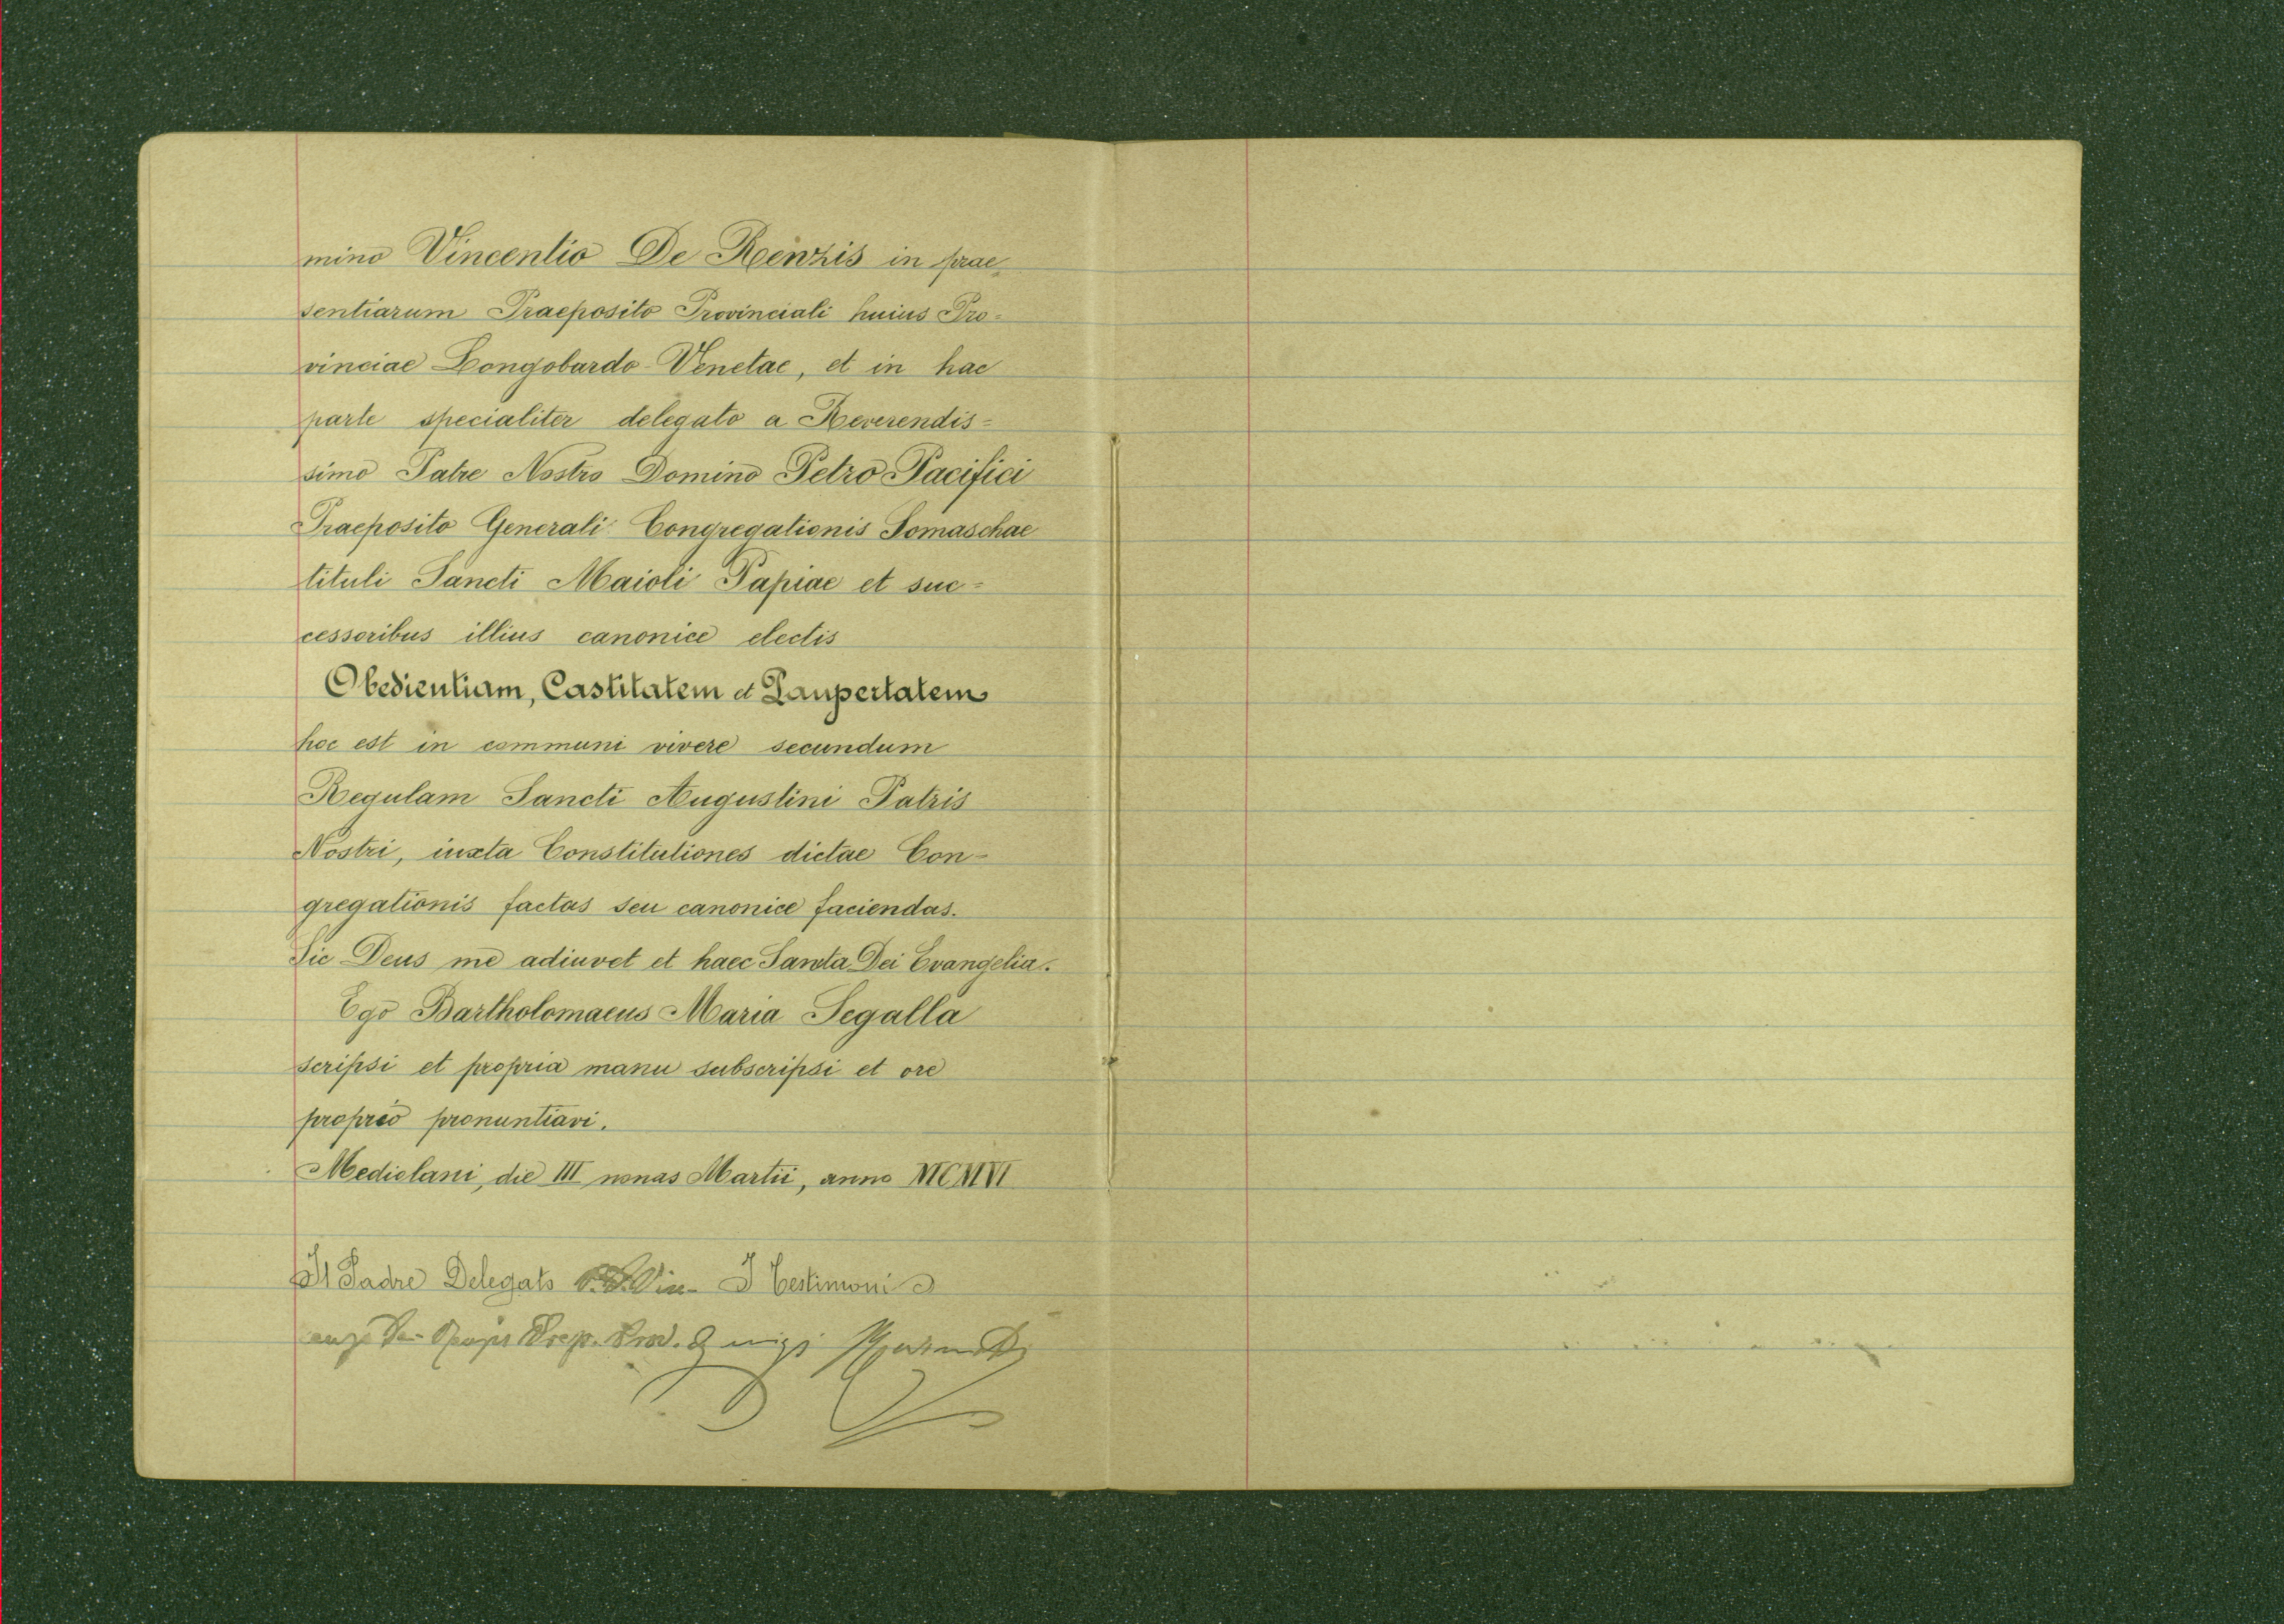 mino Vincentio De Renzis in prae-
sentiarum Praeposito Provinciali huius Pro=
vinciae Longobardo-Venetae, et in hac
parte specialiter delegato a Reverendis=
simo Patre Nostro Domino Petro Pacifici
Praeposito Generali Congregationis Somaschae
tituli Sancti Maioli Papiae et suc=
cessoribus illius canonice electis
Obedientiam, Castitatem et Paupertatem
hoc est in communi vivere secundum
Regulam Sancti Augustini Patris
Nostri, iuxta Constitutiones dictae Con-
gregationis factas seu canonice faciendas.
Sic Deus me adiuvet et haec Santa Dei Evangelia.
Ego Bartholomaeus Maria Segalla
scripsi et propria manu subscripsi et ore
proprio pronuntiavi.
Mediolani, die III nonas Martii, anno MCMVI
Il Padre Delegato I testimoni
Prep. Prov.